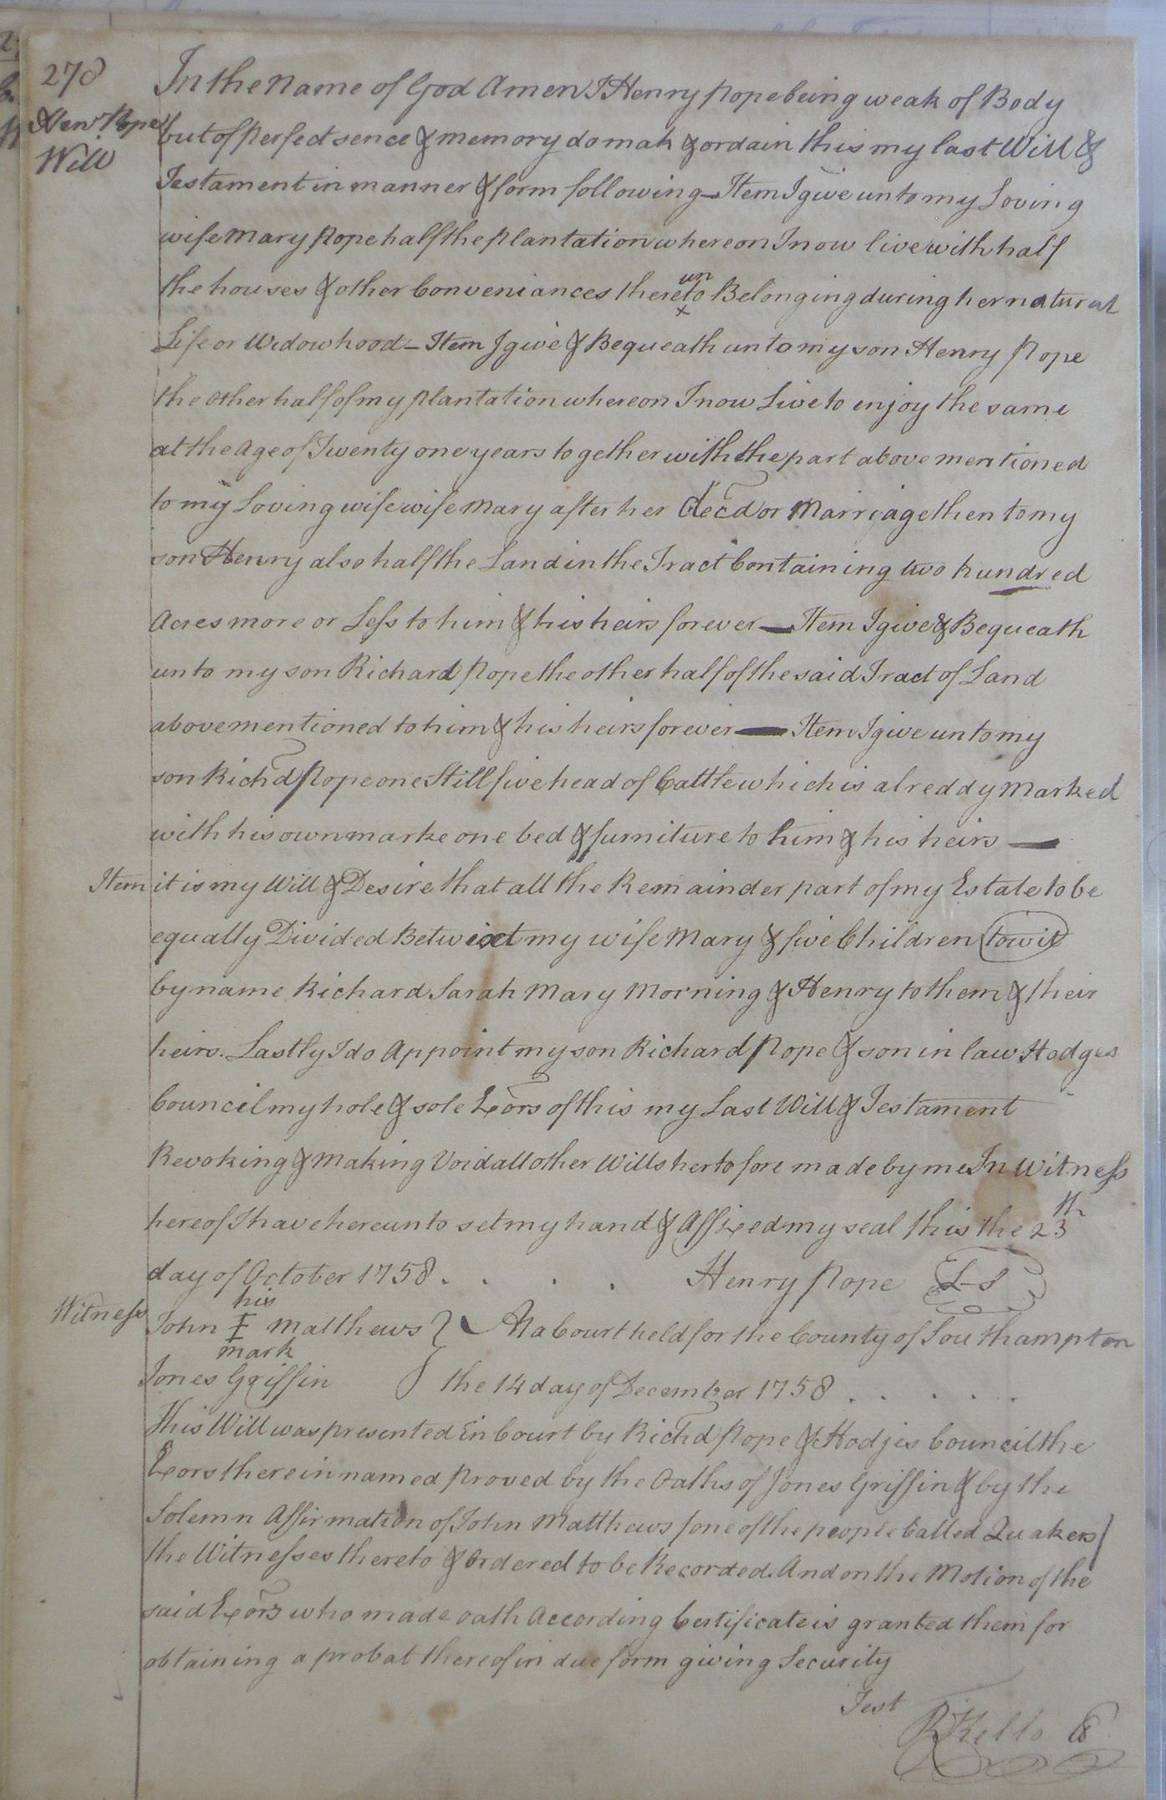 278
Henry Pope
Will
In the Name of God Amen I Henry Pope being weak of Body
but of Perfect sence & memory do mak & ordain this my last Will &
Testament in manner & form following – Item I give unto my Loving
wife Mary Pope half the Plantation whereon I now live with half
the houses & other Conveniances thereunto Belonging during her natural
Life or Widowhood – Item I give & Bequeath unto my son Henry Pope
the other half of my Plantation whereon I now Live to enjoy the same
at the Age of Twenty one years together with the part above mentioned
to my Loving wife wife Mary after her decd or Marriage then to my
son Henry also half the Land in the Tract Containing two hundred
Acres more or Less to him & his heirs forever — Item I give & Bequeath
unto my son Richard Pope the other half of the said Tract of Land
above mentioned to him & his heirs forever — Item I give unto my
son Richd Pope one Still five head of Cattle which is alreddy Marked
with his own marke one bed & furniture to him & his heirs —
Item it is my Will & Desire that all the Remainder part of my Estate to be
equally Divided Betwixt my wife Mary & five Children (towit)
by name Richard Sarah Mary Morning & Henry to them & their
heirs. Lastly I do Appoint my son Richard Pope & son in law Hodges
Council my hole & sole Exors of this my Last Will & Testament
Revoking & Making Void all other Wills hertofore made by me In Witness
hereof I have hereunto set my hand & Affixed my seal this the 23th
day of October 1758 . . . . Henry Pope L-S
Witness
his
John I Matthews } At a Court held for the County of Southampton
mark
Jones Griffin } the 14 day of December 1758 . . . . .
This Will was presented in Court by Richd Pope & Hodjes Council the
Exors therein named Proved by the Oaths of Jones Griffin & by the
Solemn Affirmation of John Matthews (one of the people Called Quakers)
the Witnesses thereto & Ordered to be Recorded. And on the Motion of the
said Exors who made oath According Certificate is granted them for
obtaining a probat thereof in due form giving Security
Test
R Kello